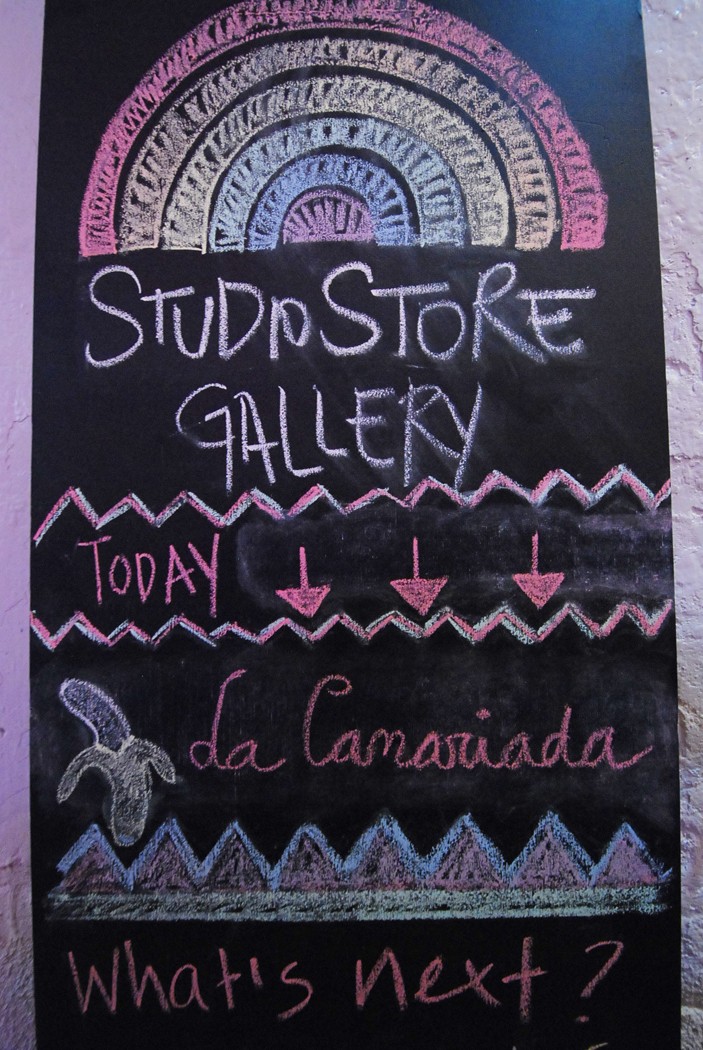 STUDIO STORE
GALLERY
TODAY
La Canariada
What's next?